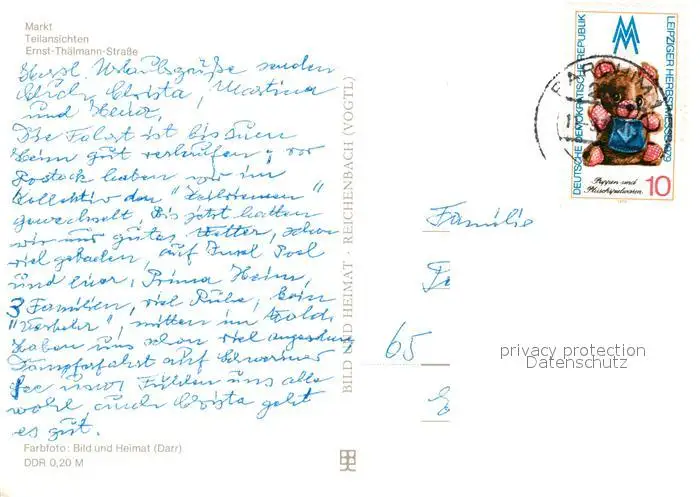 Markt
Teilansichten
Ernst-Thälmann-Straße
Herzl. Urlaubsgrüße senden
Euch Christa, Martina
und Heinz,
Die Fahrt ist bis zum
Heim gut verlaufen, vor
Rostock haben wir im
Kollektiv den
gewechselt, Bis jetzt hatten
wir nur gutes Wetter, schon
viel gebaden, auf Insel Poel
und Prima Heim,
3 Familien, viel Ruhe, kein
"Verkehr", mitten im Wald.
Haben uns schon viel angeschaut
Dampferfahrt auf Schweriner
See usw. Fühlen uns alle
wohl, auch Christa geht
es gut.
Farbfoto: Bild und Heimat (Darr)
DDR 0,20 M
BILD UND HEIMAT · REICHENBACH (VOGTL)
DEUTSCHE DEMOKRATISCHE REPUBLIK
LEIPZIGER HERBSTMESSE 1979
Puppen und
Plüschspielwaren
10
Familie
65
privacy protection
Datenschutz